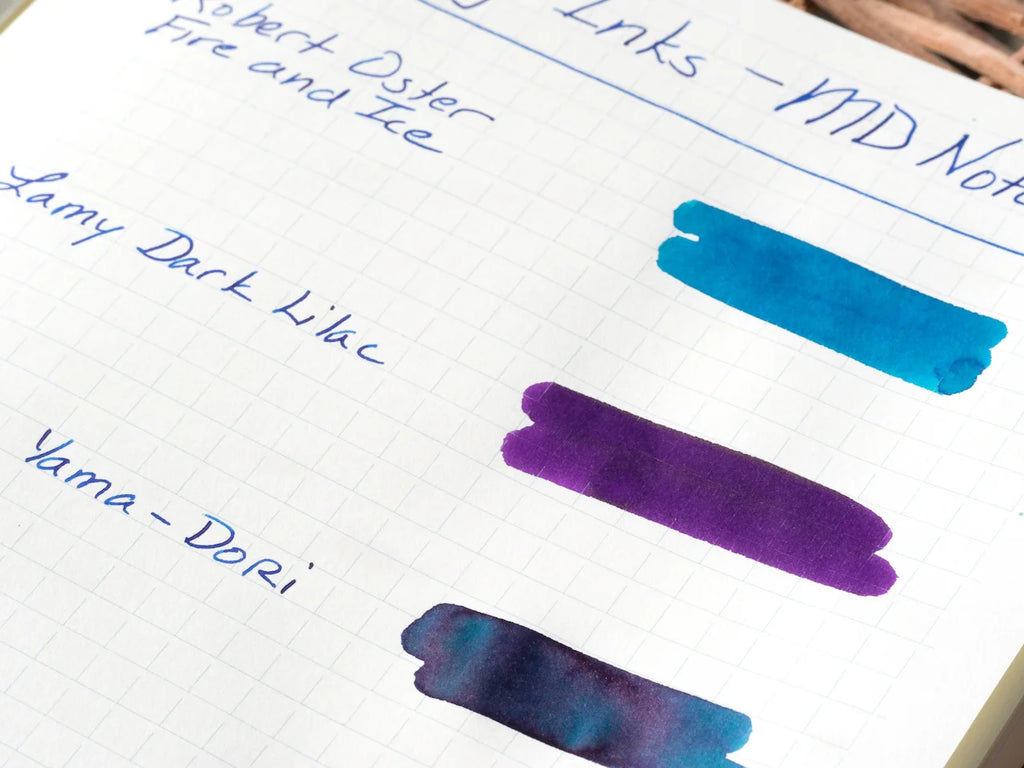 Inks - MD
Robert Oster
Fire and Ice
Lamy Dark Lilac
Yama-DORi